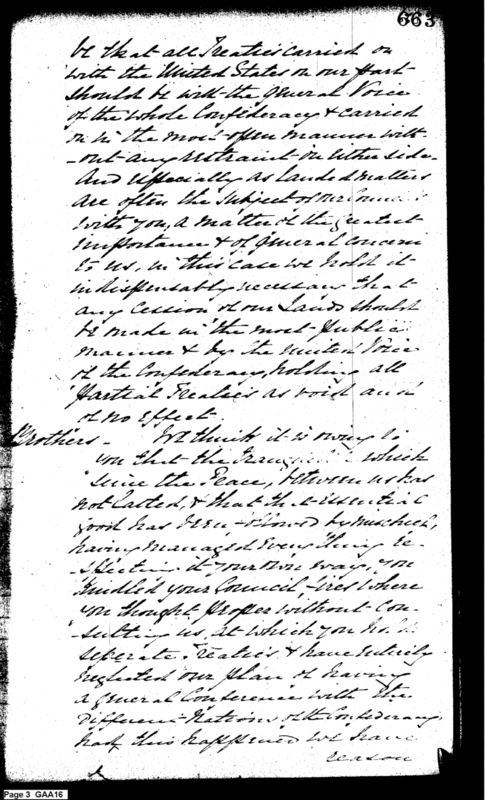 663
be that all Treaties carried on
with the United States on our part
should be with the general Voice
of the whole Confederacy & carried
on in the most open manner with-
-out any restraint on either side -
And especially as landed matters
are often the subject of our Counci
with you, a matter of the greatest
importance & of general concern
to us, in this case we hold it
indispensably necessary that
any Cession of our Lands should
be made in the most public
manner & by the united Voice
of the Confederacy, holding all
partial Treaties as void and
of no effect.
Brothers - We think it is owing to
you that the which
since the Peace, between us has
not lasted, & that that essential
good has been followed by mischief,
having managed every thing re-
-specting it your own way, you
kindled your Council fires where
you thought proper without con-
-sulting us, at which you held
seperate Treaties & have entirely
neglected our plan of having
a general Conference with the
Different Nations of the Confederacy,
had this happened we have
reason
Page 3 GAA16